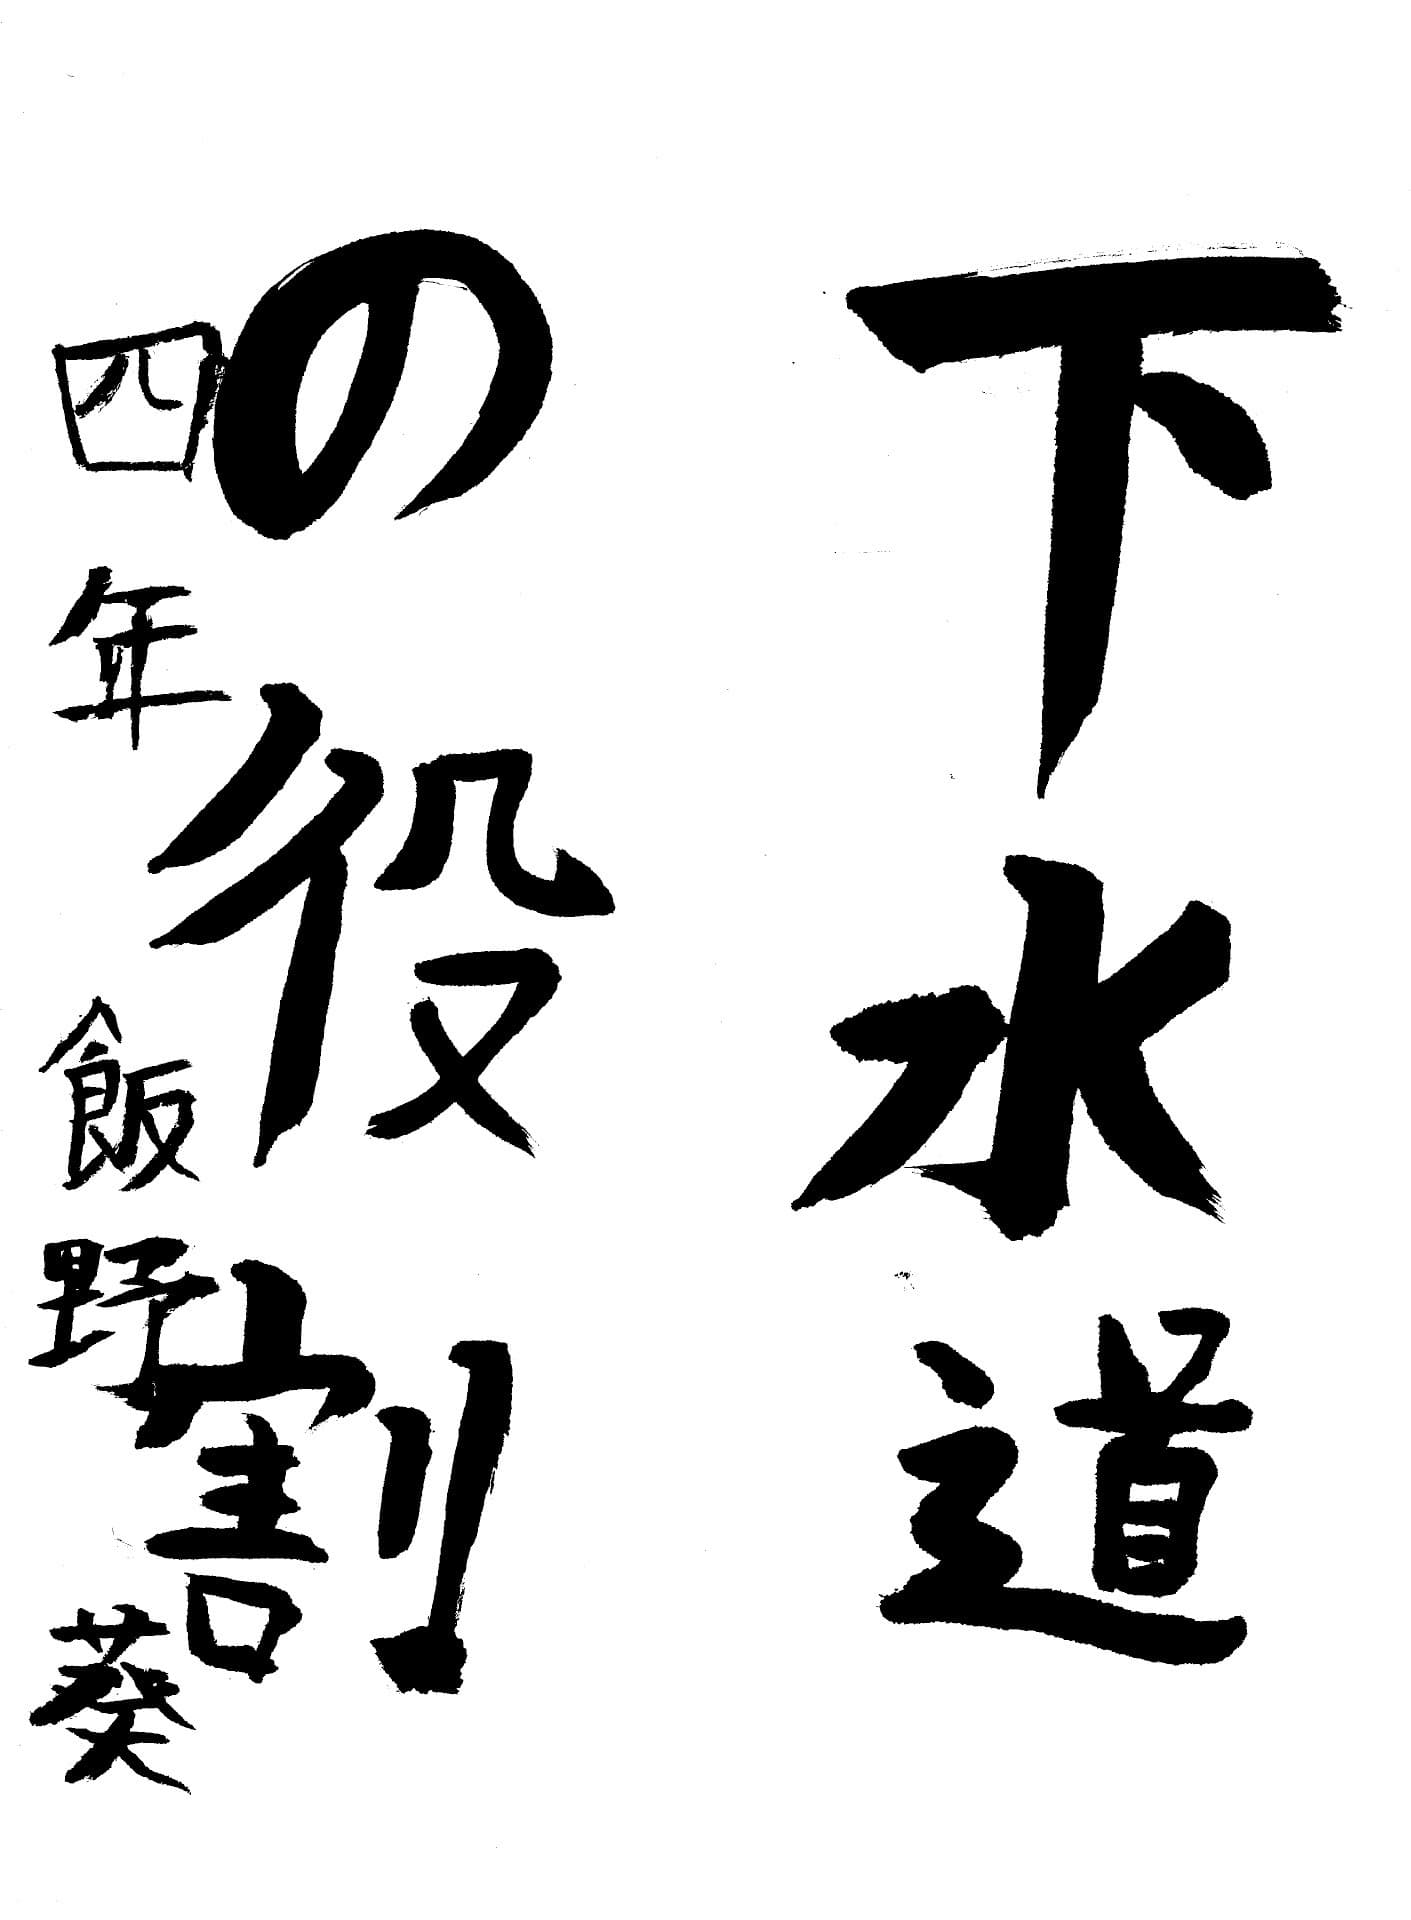 下水道
の役割
四年 飯野葵